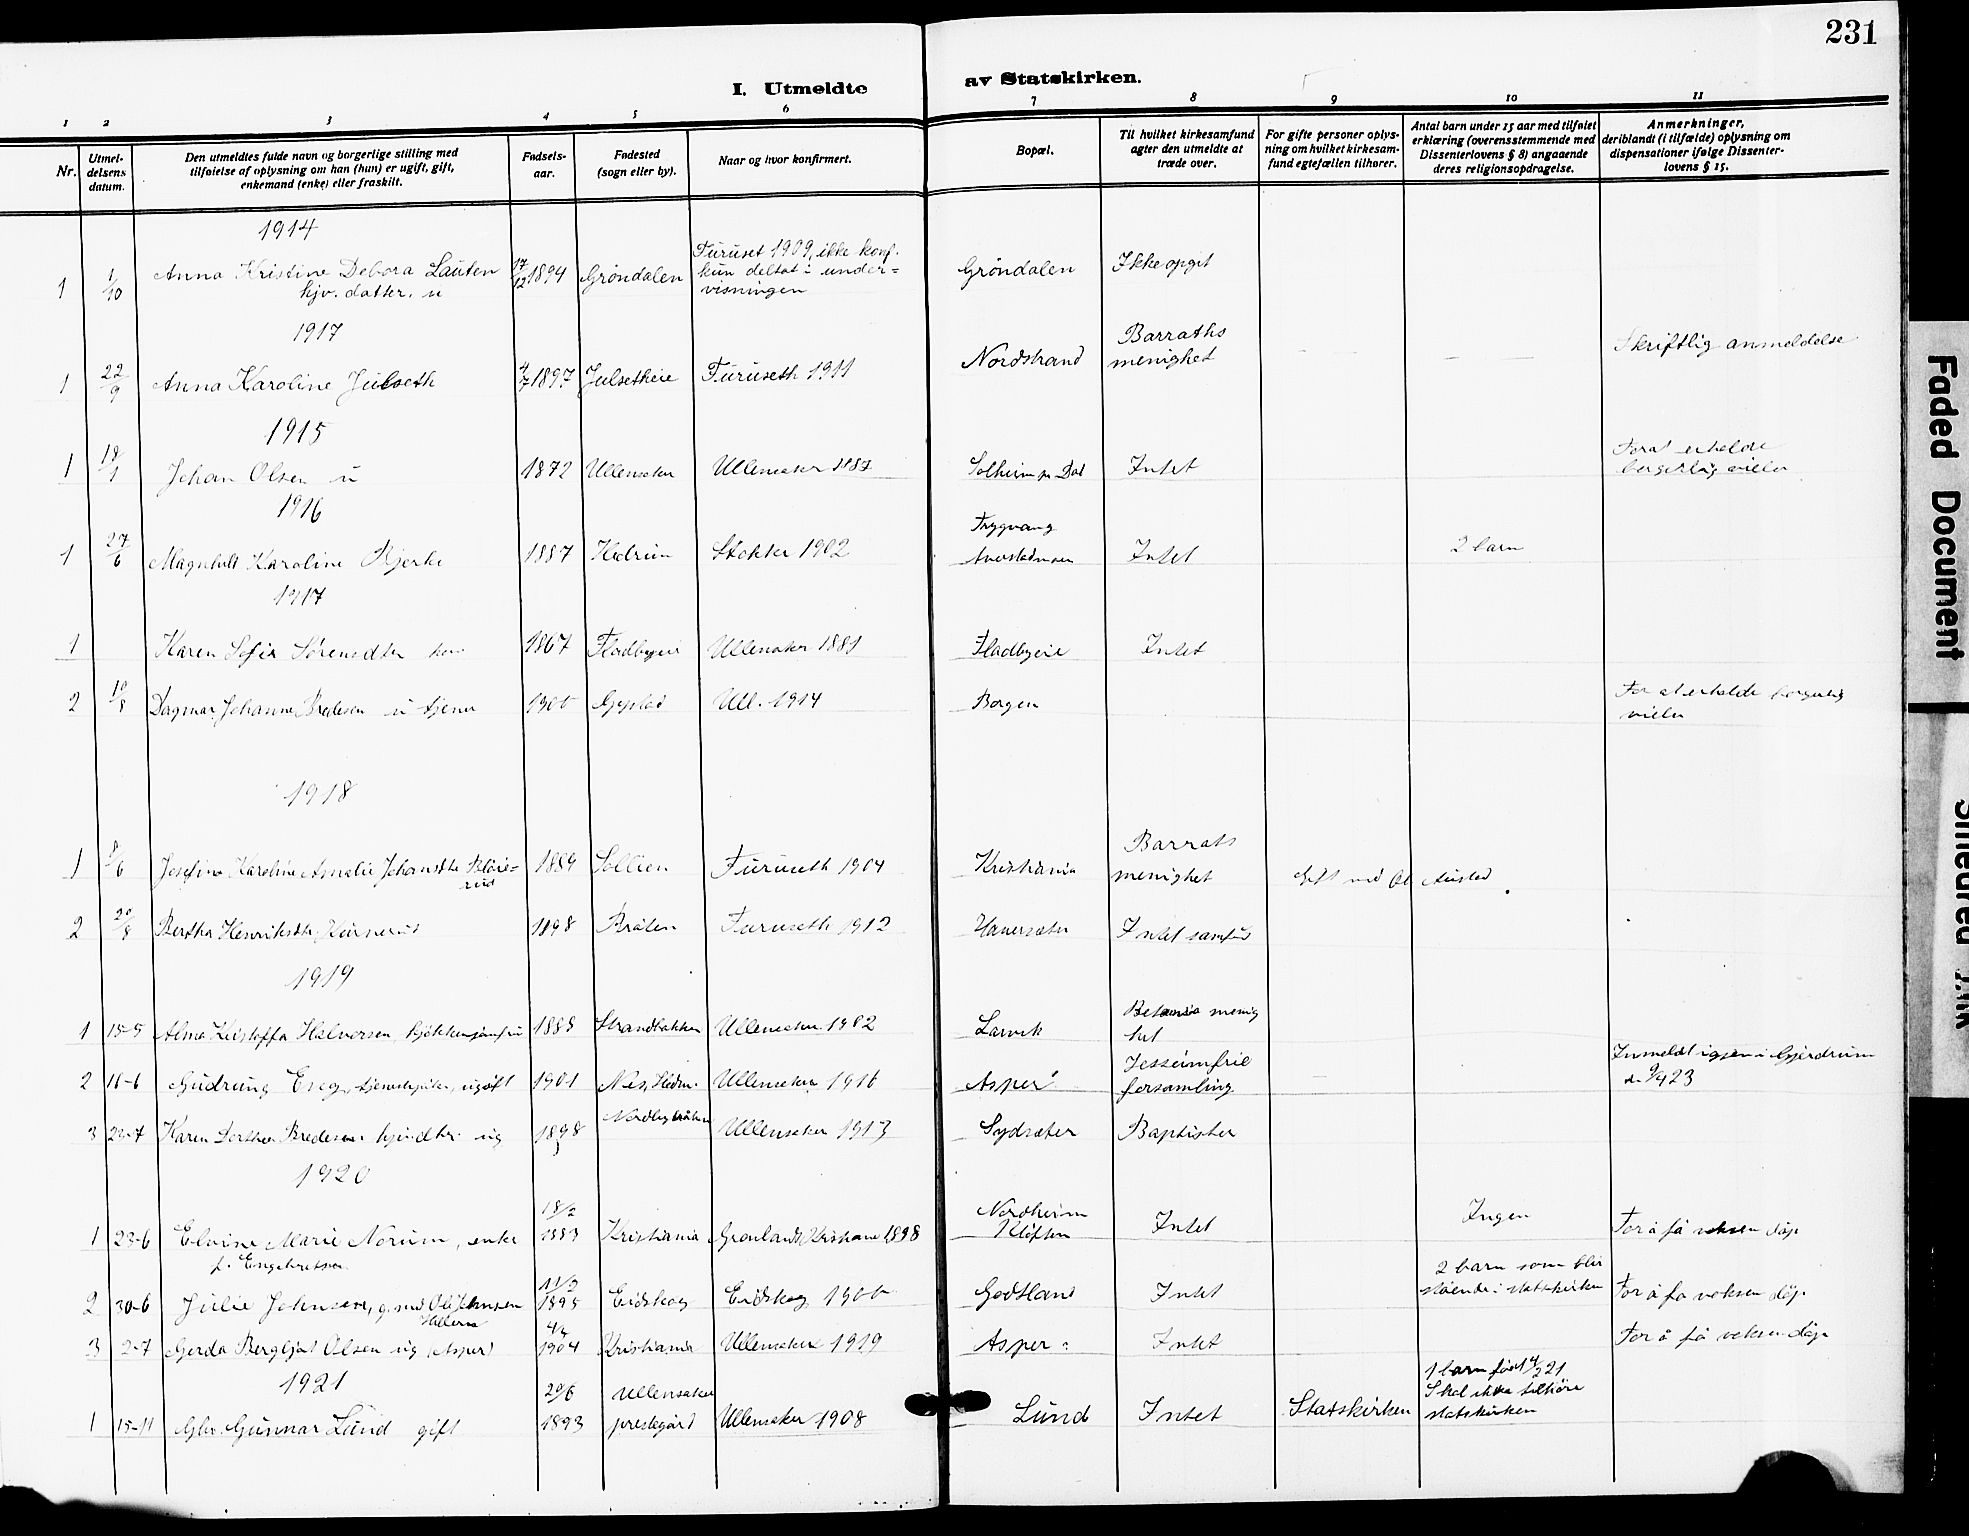 231
I. Utmeldte av Statskirken.
1 2 3 4 5 6 7 8 9 10 11
Nr.
Utmel-
delsens
datum.
Den utmeldtes fulde navn og borgerlige stilling med
tilføielse af oplysning om han (hun) er ugift, gift,
enkemand (enke) eller fraskilt.
Fødsels-
aar.
Fødested
(sogn eller by).
Naar og hvor konfirmert.
Bopæl.
Til hvilket kirkesamfund
agter den utmeldte at
træde over.
For gifte personer oplys-
ning om hvilket kirkesam-
fund egtefællen tilhører.
Antal barn under 15 aar med tilføiet
erklæring (overensstemmende med
Dissenterlovens § 8) angaaende
deres religionsopdragelse.
Anmerkninger,
deriblandt (i tilfælde) oplysning om
dispensationer ifølge Dissenter-
lovens § 15.
1914
1 1/10 Anna Kristine Debora Lauten 17/12 1894 Gröndalen Furuset 1909, ikke konf. Gröndalen Ikke opgit
hjv. datter. u kun deltat i under=
visningen
1917
1 22/9 Anna Karoline Julseth 4/7 1897 Julsetheie Furuseth 1911 Nordstrand Barraths Skriftlig anmeldelse
menighet
1915
1 18/1 Johan Olsen u 1872 Ullensaker Ullensaker 1887 Solheim pr Dal Intet For at erholde
borgerlig vielse
1916
1 27/6 Karoline Bjerke 1887 Stokke 1902 Trygvang Intet 2 barn
1917
1 Karen Sofie Sørensdtr 1867 Fladbyeie Ullensaker 1881 Fladbyeie Intet
2 10/8 Dagmar Johanne Bredesen u tjener 1900 Gystad Ull. 1914 Borgen For at erholde borgerlig
vielse
1918
1 8/6 Josefine Karoline Amalie Johansdtr 1889 Sollien Furuseth 1904 Kristiania Barrats Gift med
rud menighet
2 20/8 Bertha Henriksdtr 1898 Bråten Furuseth 1912 Intet samfund
1919
1 15-5 Alma Kristoffa Halvorsen, kjökkenjomfru 1888 Strandbakken Ullensaker 1902 Larvik Betania menig
het
2 16-6 Gudrung Eng, ugift 1901 Nes, Hedm. Ullensaker 1916 Asper Jessheim frie Innmeldt igjen i Gjerdrum
forsamling d. 9/4 23
3 22-7 Karen Dorthea Bredesen ug 1898 Nordbybråten Ullensaker 1913 Sydsæter Baptister
1920
1 23-6 Elvine Marie Norum, enke 18/2 1883 Kristiania Grønlands, Kristiania 1898 Nordheim Kløften Intet Ingen For å få voksen dåp.
f. Engebretsen
2 30-6 Julie Johnsen, g. med Ole Johnsen 11/3 1895 Eidskog Eidskog 1900 Godtland Intet 2 barn som blir stående i statskirken For å få voksen dåp
3 2-7 Gerda Bergljot Olsen ug (Asper) 1904 Kristiania Ullensaker 1919 Asper Intet For å få voksen dåp
1921
1 15-11 Gunnar Lund gift 20/6 1893 Ullensaker prestegård Ullensaker 1908 Lund Intet Statskirken 1 barn født 1/2 21
Skal ikke tilhøre
statskirken
Faded Document
Smeared Ink